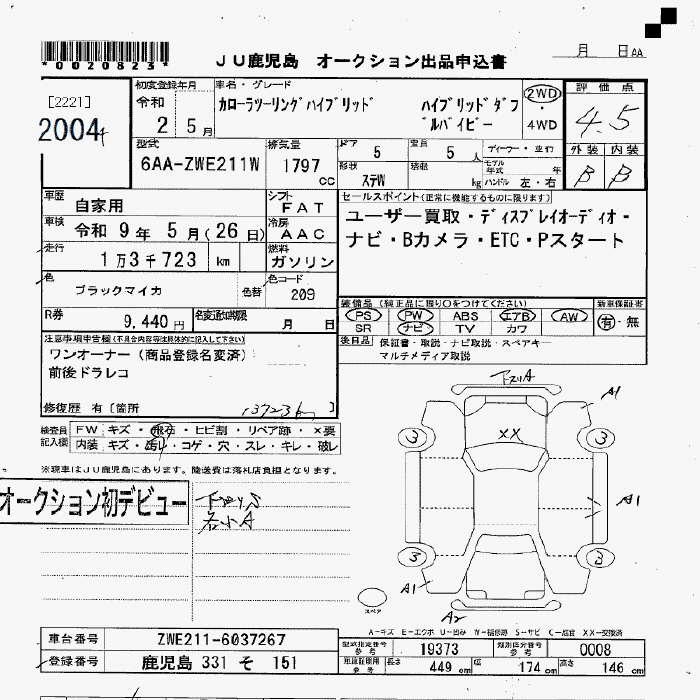 *0020823*
JU鹿児島 オークション出品申込書
月 日AA
[2221]
2004
初度登録年月
令和
2 5月
車名・グレード
カローラツーリングハイブリッド ハイブリッドダブ
ルバイビー
2WD
・
4WD
評価点
4.5
外装 内装
B B
型式
6AA-ZWE211W
排気量
1797
cc
ドア
5
定員
5 人
形状
ステW
積載
kg
ディーラー・並行
モデル年式 年
ハンドル 左・右
車歴
自家用
シフト
FAT
車検
令和 9年 5月(26日)
冷房
AAC
走行
1万3千723 km
燃料
ガソリン
色
ブラックマイカ
色替
色コード
209
R券
9,440円
名変通知期限
月 日
セールスポイント(正常に機能するものに限ります)
ユーザー買取・ディスプレイオーディオ・
ナビ・Bカメラ・ETC・Pスタート
装備品(純正品に限り○をつけてください)
新車保証書
PS PW ABS エアB AW
SR ナビ TV カワ
有・無
後日品
保証書・取説・ナビ取説・スペアキー
マルチメディア取説
注意事項申告欄(不具合内容等は具体的に記入して下さい)
ワンオーナー(商品登録名変済)
前後ドラレコ
修復歴 有[箇所
13723km
検査員
記入欄
FW キズ・飛石・ヒビ割・リペア跡・×要
内装 キズ・汚れ・コゲ・穴・スレ・キレ・破レ
※現車はJU鹿児島にあります。陸送費は落札店負担となります。
オークション初デビュー
下回りS
各小A
下回りA
A1
3 3
XX
A1
3 3
A1
A2
スペア
A-キズ E-エクボ U-凹み W-補修跡 S-サビ C-腐食 XX-交換済
車台番号
ZWE211-6037267
登録番号
鹿児島 331 そ 151
型式指定番号
参考
19373
類別区分番号
参考
0008
車庫証明用
参考
長さ
449 cm
幅
174 cm
高さ
146 cm